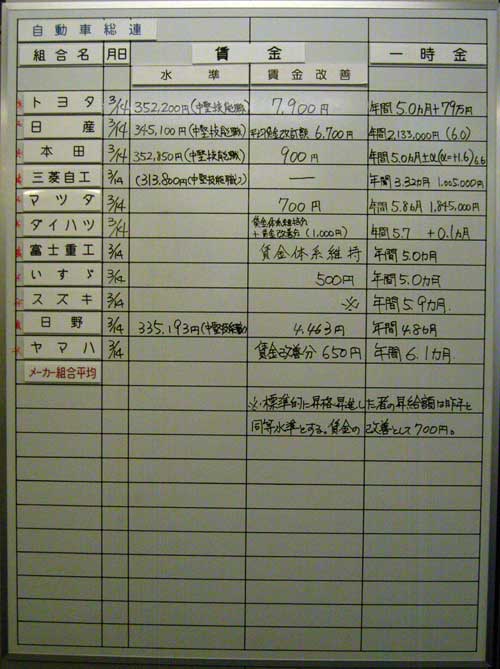 自動車総連
組合名 月日 賃金 一時金
水準 賃金改善
トヨタ 3/14 352,200円(中堅技能職) 7,900円 年間5.0カ月+79万円
日産 3/14 345,100円(中堅技能職) 平均賃金改訂額 6,700円 年間2,133,000円(6.0)
本田 3/14 352,850円(中堅技能職) 900円 年間5.0カ月±α(α=+1.6)6.6
三菱自工 3/14 (313,800円(中堅技能職)) ― 年間3.32カ月 1,005,000円
マツダ 3/14 700円 年間5.8カ月 1,845,000円
ダイハツ 3/14 賃金体系維持分
+賃金改善分(1,000円) 年間5.7 +0.1カ月
富士重工 3/14 賃金体系維持 年間5.0カ月
いすゞ 3/14 500円 年間5.0カ月
スズキ 3/14 ※ 年間5.9カ月.
日野 3/14 335,193円(中堅技能職) 4,463円 年間4.8カ月
ヤマハ 3/14 賃金改善分 650円 年間6.1カ月.
メーカー組合平均
※標準的に昇格昇進した者の昇給額は昨年と
同等水準とする。賃金の改善として700円。